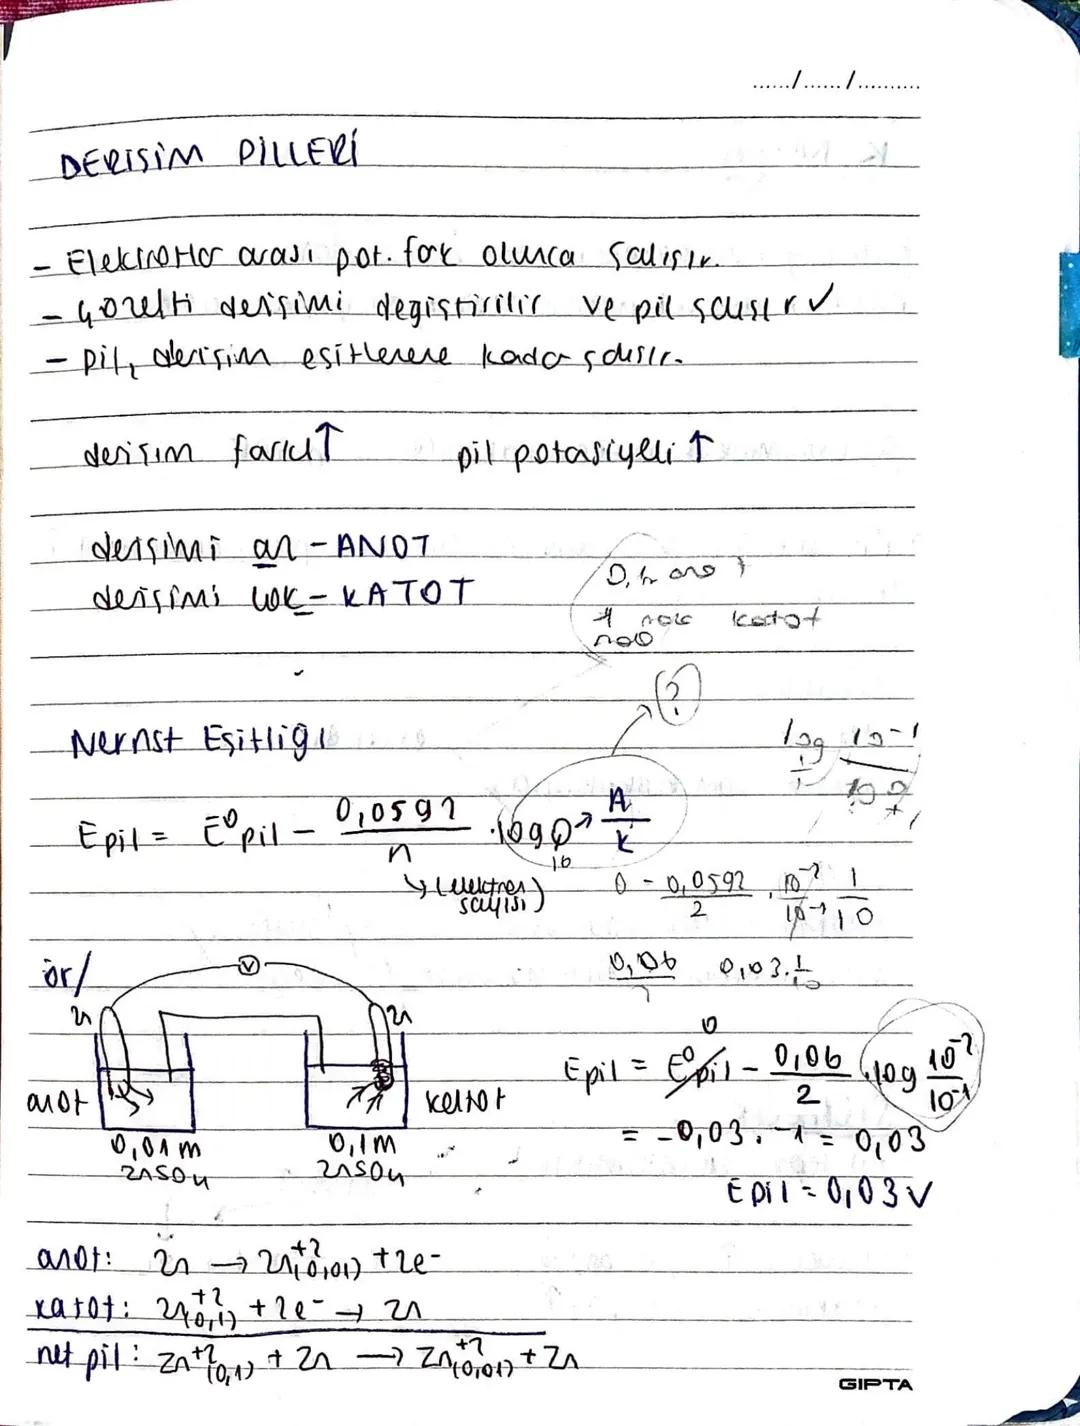 ....../....../..........
DERİŞİM PİLLERİ
- Elektrotlar arası pot. fark olunca çalışır.
- Çözelti derişimi değiştirilir ve pil çalışır ✓
- pil, derişim eşitlenene kadar çalışır.
derişim farkı↑ pil potasiyeli↑
derişimi az - ANOT
derişimi çok - KATOT
katot
?
Nernst Eşitliği
log 10-1
Epil = E⁰pil - 0,0592/n . logQ → A/K
(elektron sayısı)
0 - 0,0592/2 . 10-2/10-1 1/10
0,06 0,03.1/10
ör/
V
Zn Zn
anot katot
0,01 m 0,1 m
ZnSO4 ZnSO4
Epil = E⁰pil - 0,06/2 . log 10-2/10-1
0
= -0,03 . -1 = 0,03
Epil = 0,03 V
anot: Zn → Zn+2(0,01) + 2e-
katot: Zn+2(0,1) + 2e- → Zn
net pil: Zn+2(0,1) + Zn → Zn+2(0,01) + Zn
GIPTA